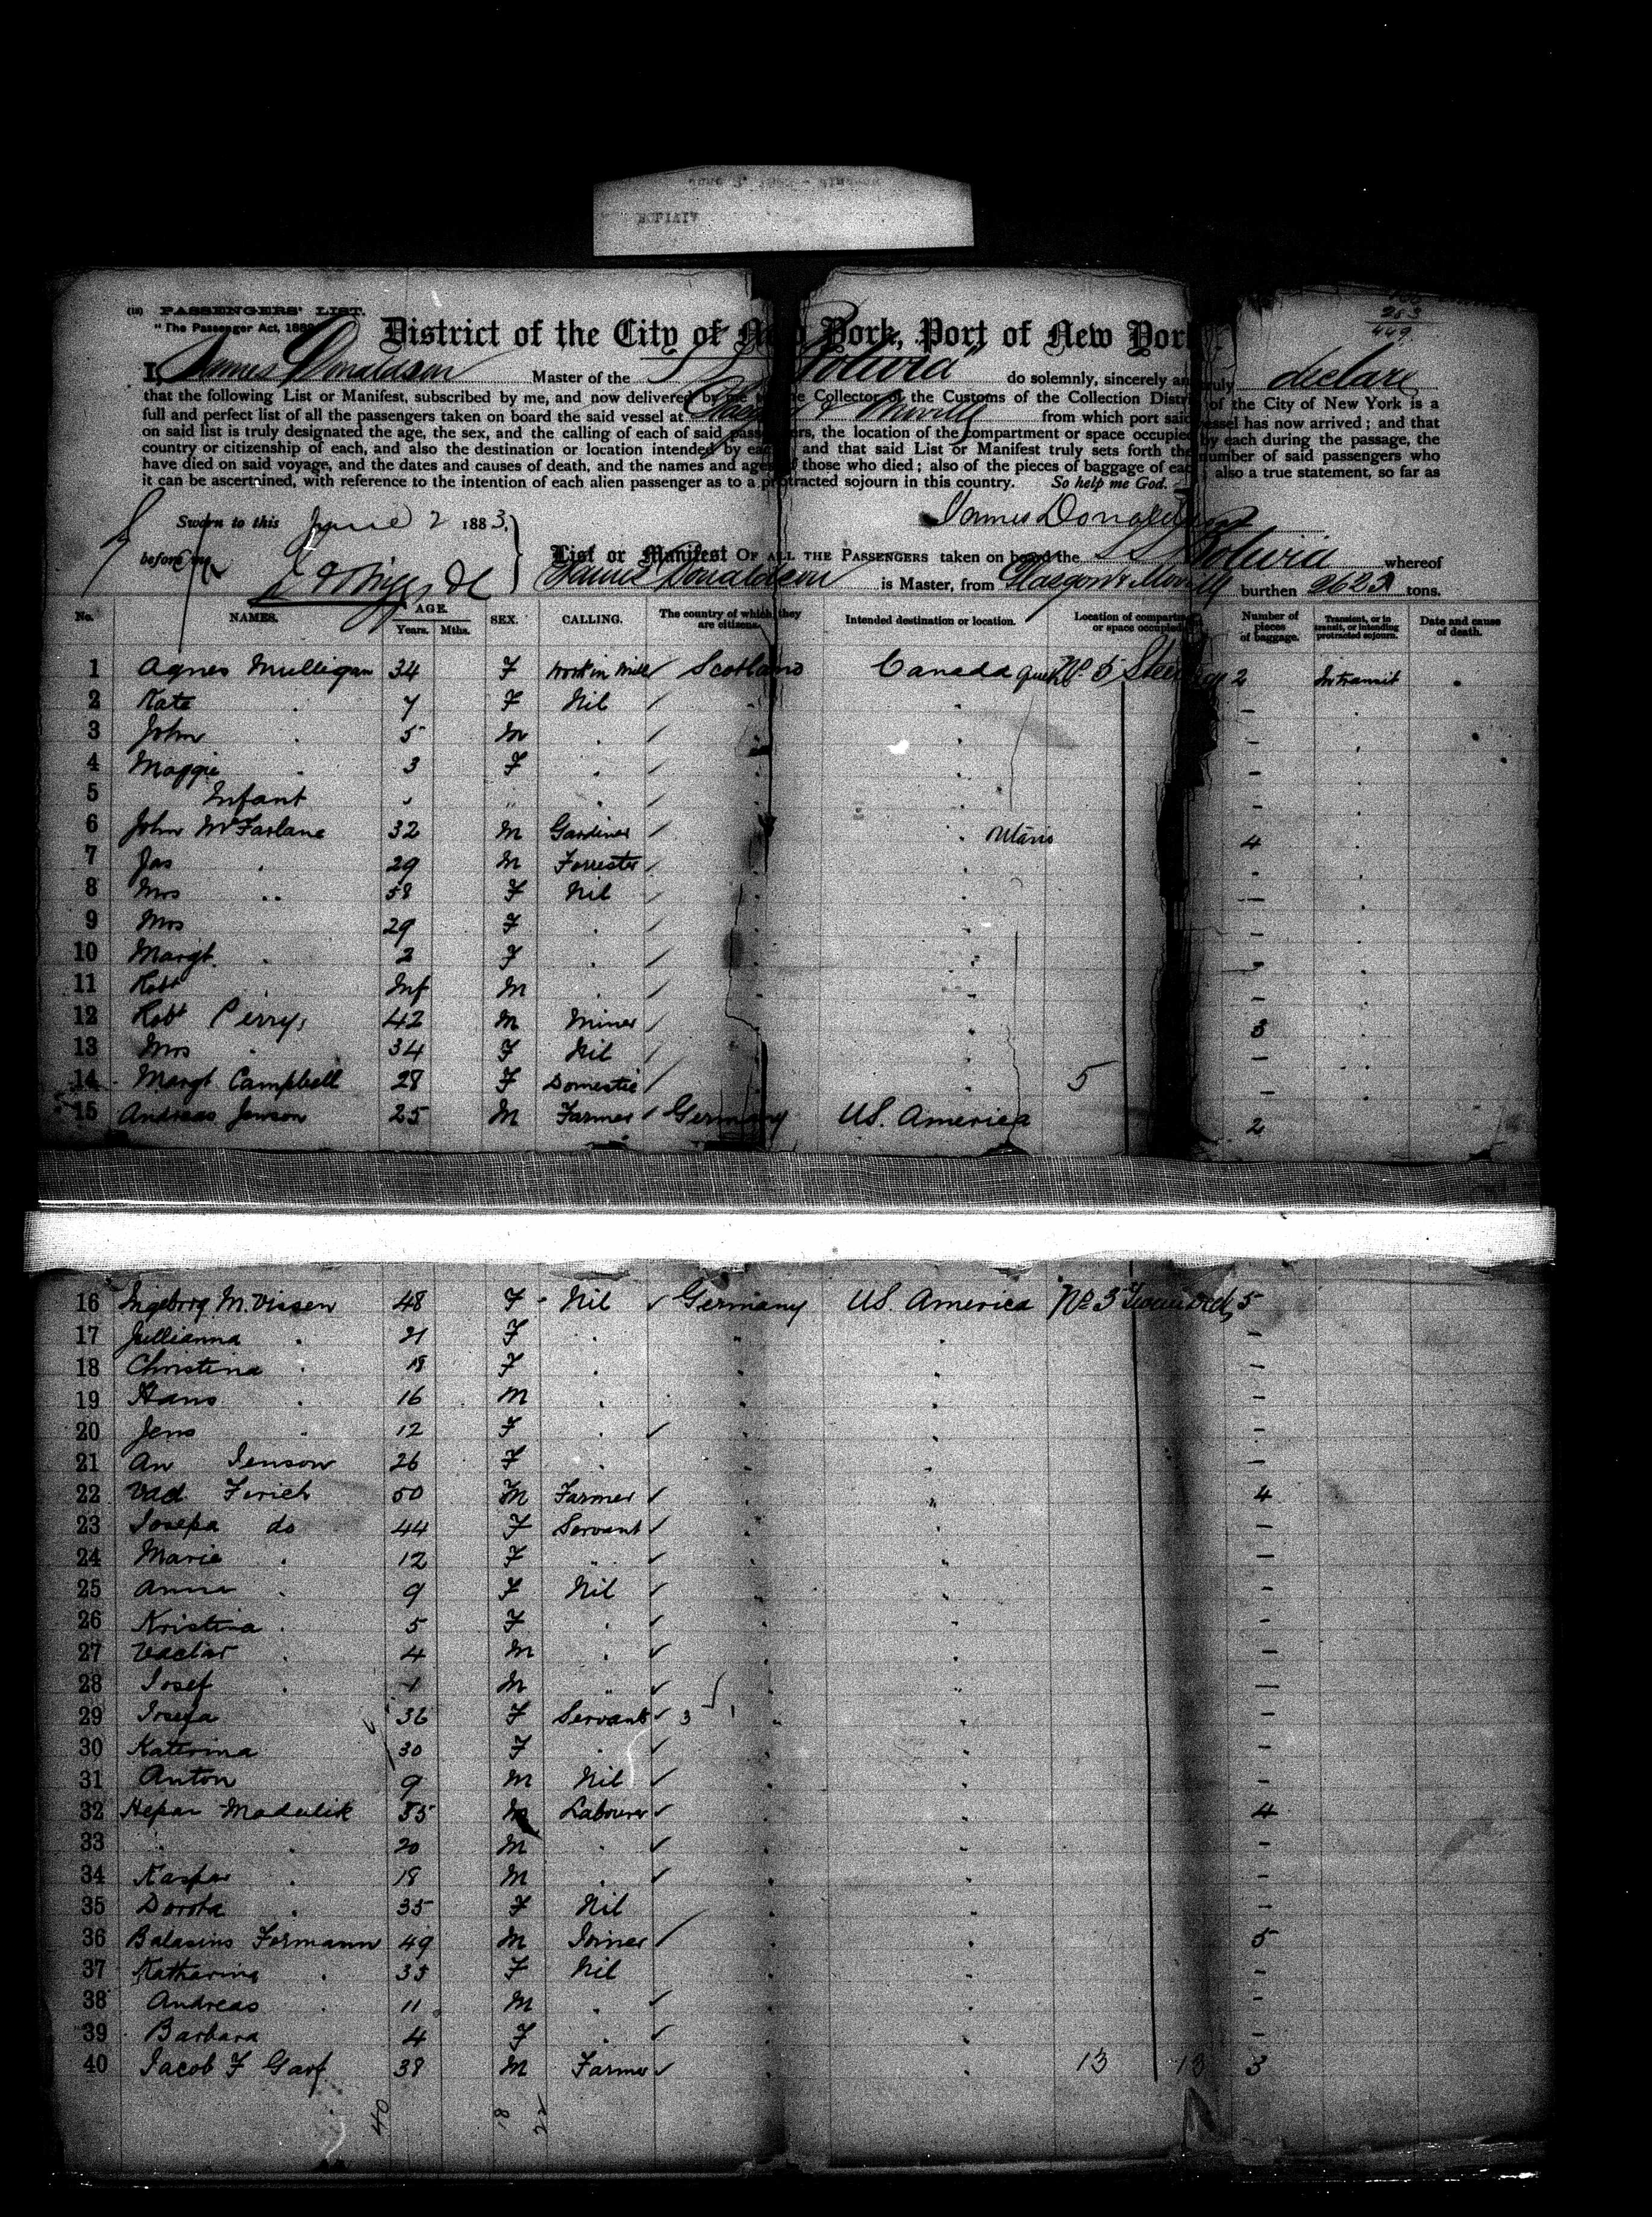 BOLIVIA
(18) PASSENGERS' LIST.
"The Passenger Act, 1882
District of the City of New York, Port of New York
263
449
I, James Donaldson Master of the SS "Bolivia" do solemnly, sincerely and truly declare
that the following List or Manifest, subscribed by me, and now delivered by me to the Collector of the Customs of the Collection District of the City of New York is a
full and perfect list of all the passengers taken on board the said vessel at Glasgow & Moville from which port said vessel has now arrived; and that
on said list is truly designated the age, the sex, and the calling of each of said passengers, the location of the compartment or space occupied by each during the passage, the
country or citizenship of each, and also the destination or location intended by each and that said List or Manifest truly sets forth the number of said passengers who
have died on said voyage, and the dates and causes of death, and the names and ages of those who died; also of the pieces of baggage of each; also a true statement, so far as
it can be ascertained, with reference to the intention of each alien passenger as to a protracted sojourn in this country. So help me God.
Sworn to this June 2 1883. James Donaldson
before me
List or Manifest OF ALL THE PASSENGERS taken on board the SS Bolivia whereof
James Donaldson is Master, from Glasgow & Moville burthen 2623 tons.
No. NAMES. AGE. Years. Mths. SEX. CALLING. The country of which they are citizens. Intended destination or location. Location of compartment or space occupied. Number of pieces of baggage. Transient, or in transit, or intending protracted sojourn. Date and cause of death.
1 Agnes Mulligan 34 F Work in Mill Scotland Canada No. 5 Steerage 2 Intransit
2 Kate 7 F Nil
3 John 5 M
4 Maggie 3 F
5 Infant
6 John McFarlane 32 M Gardiner 4
7 Jas 29 M Forrester
8 Mrs 58 F Nil
9 Mrs 29 F
10 Margt 3 F
11 Robt Inf M
12 Robt Perrys 42 M Miner 3
13 Mrs 34 F Nil
14 Margt Campbell 28 F Domestic 5
15 Andreas Jenson 25 M Farmer Germany US. America 2
16 Ingeborg M. Vissen 48 F Nil Germany US. America No 3 Forward 5
17 Jullianna 21 F
18 Christina 18 F
19 Hans 16 M
20 Jens 12 F
21 An Jenson 26 F
22 Vad. Ferich 50 M Farmer 4
23 Josepa do 44 F Servant
24 Marie 12 F
25 Anna 9 F Nil
26 Kristina 5 F
27 Vaclav 4 M
28 Josef 1 M
29 Josefa 36 F Servant 3
30 Katerina 30 F
31 Anton 9 M Nil
32 Hepan Madulik 55 M Labourer 4
33 20 M
34 Kaspar 18 M
35 Dorota 35 F Nil
36 Balasius Formann 49 M Joiner 5
37 Katharina 35 F Nil
38 Andreas 11 M
39 Barbara 4 F
40 Jacob F Garf 38 M Farmer 13 13 3
40 18 22